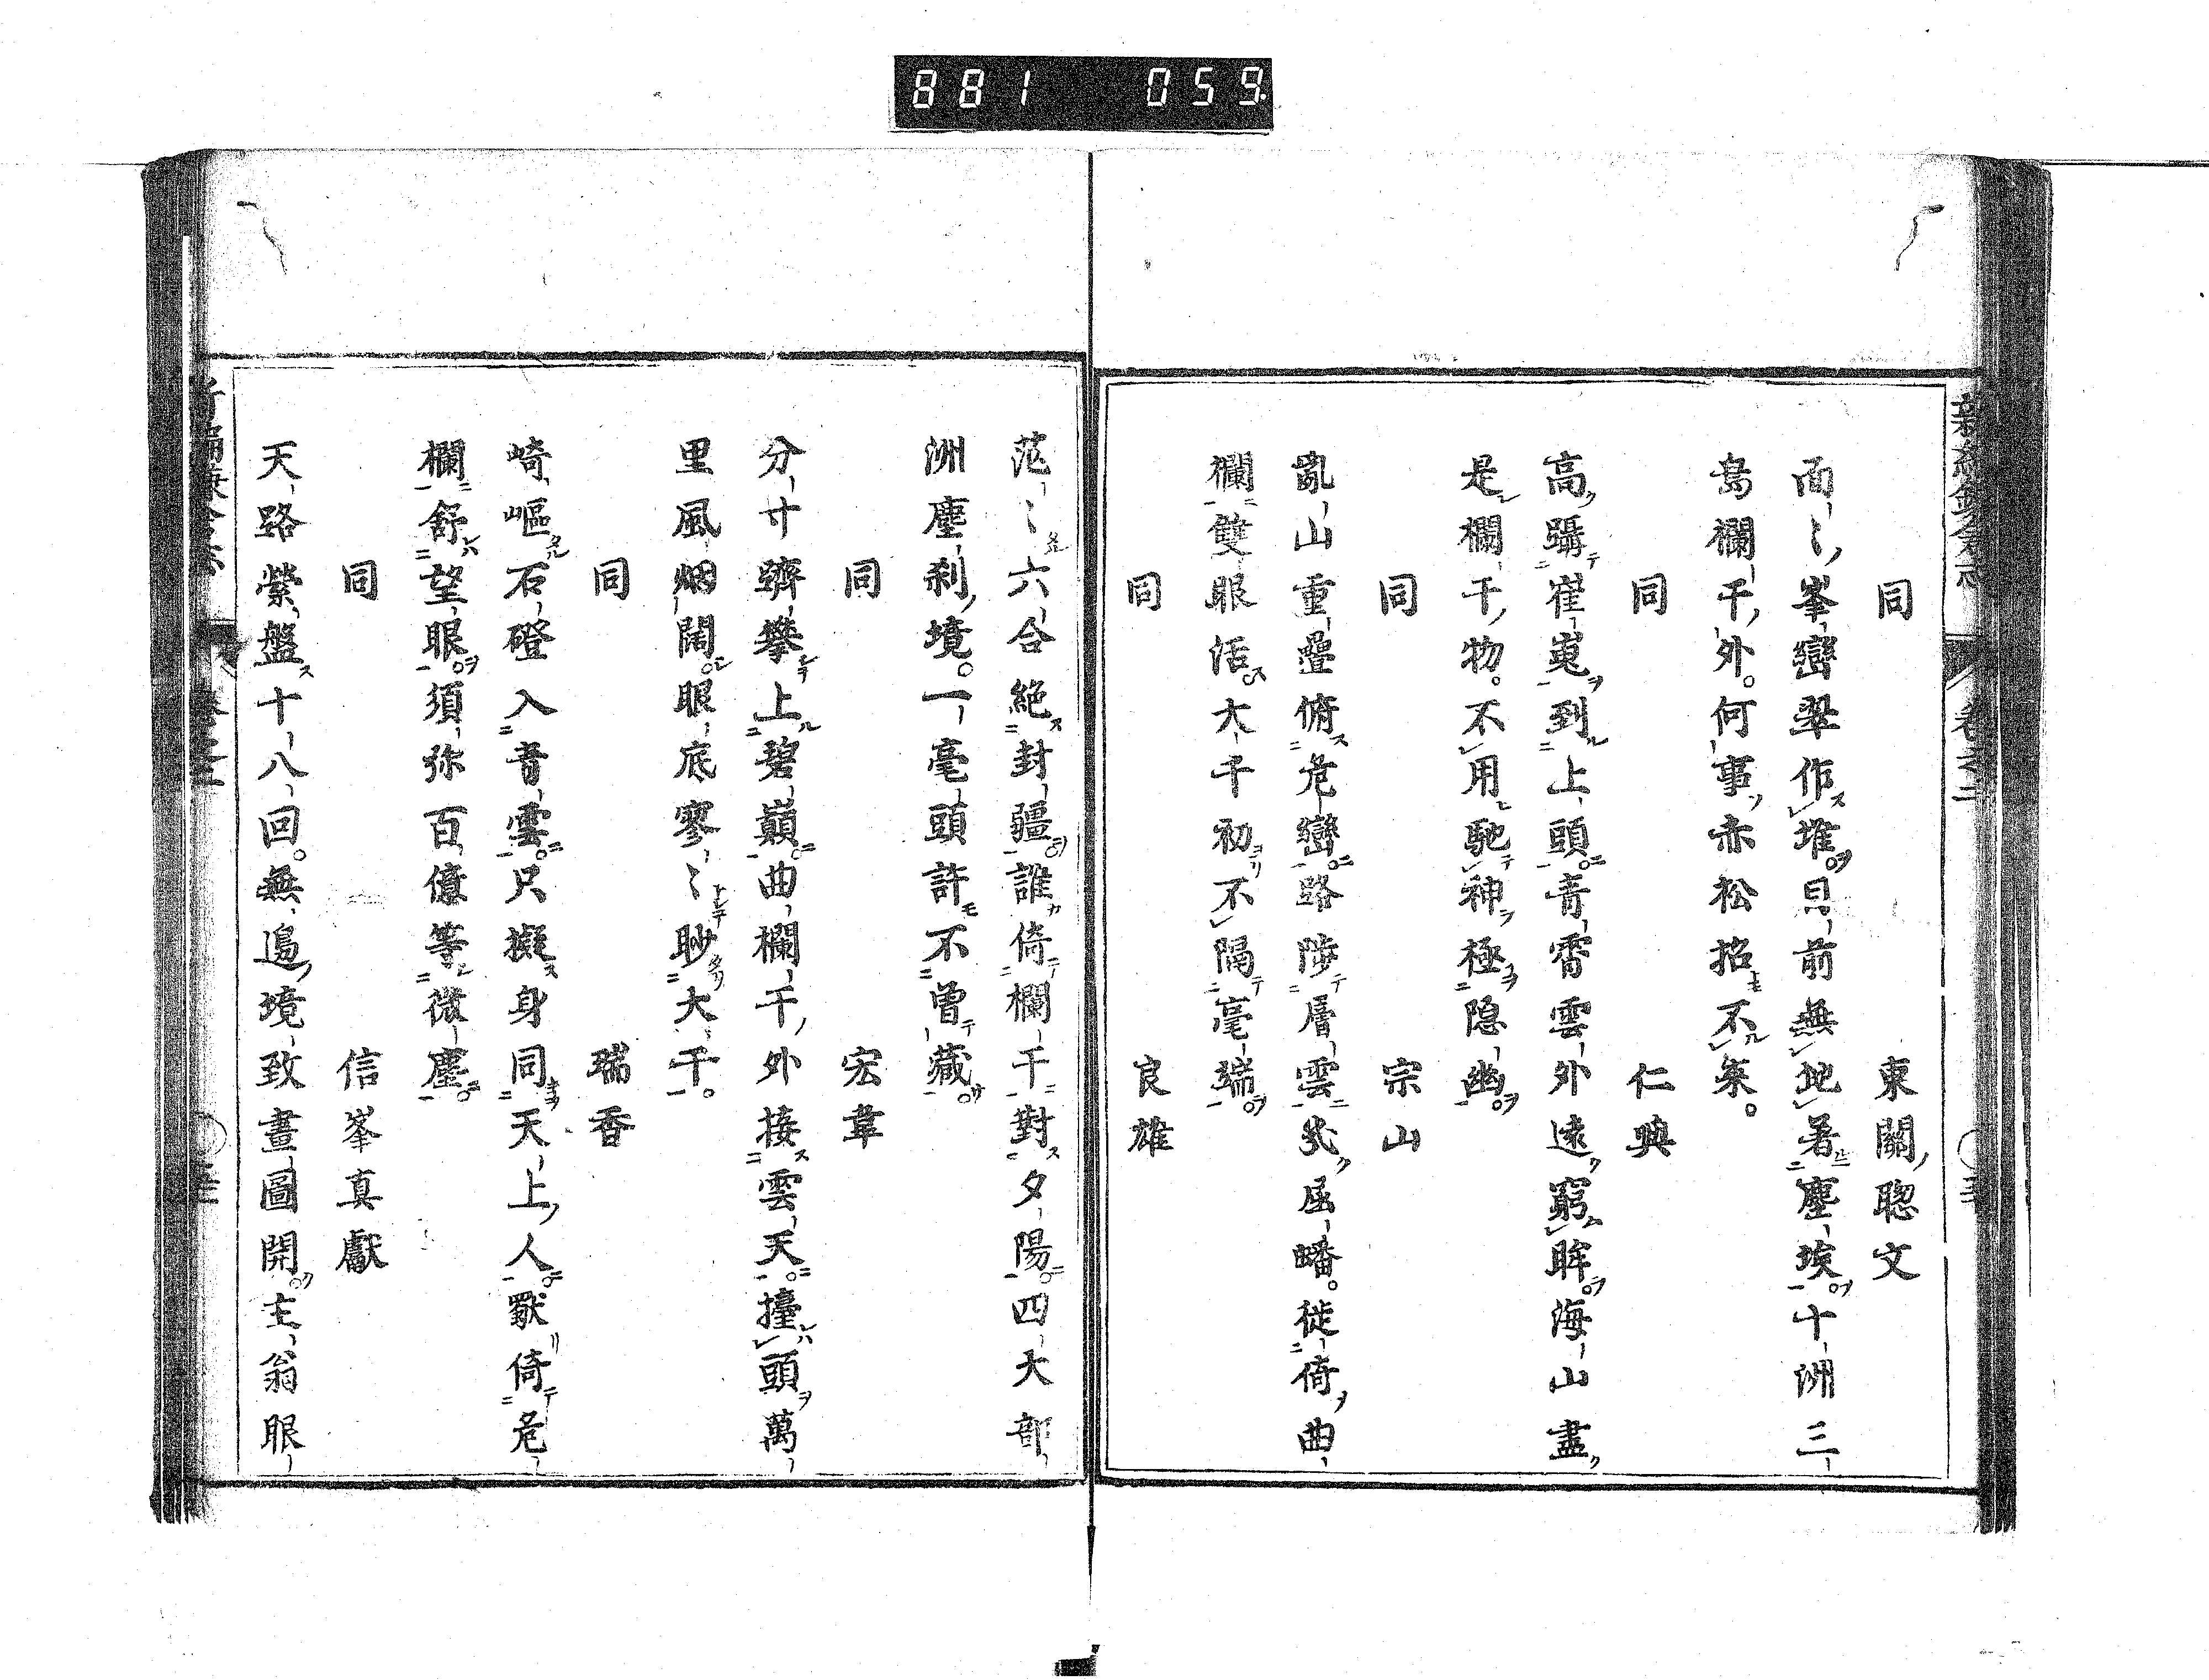 881 059
同 東關聰文
面〻峯巒翠作堆目前無地著塵埃十洲三
島欄干外何事赤松招不來
同 仁與
高躡崔嵬到上頭青霄雲外遠窮眸海山盡
是欄干物不用馳神極隠幽
同 宗山
亂山重疊俯危巒路陟層雲幾屈蟠徙倚曲
欄雙眼活大千初不隔毫端
同 良雄
茫〻六合絶封疆誰倚欄干對夕陽四大部
洲塵刹境一毫頭許不曾藏
同 宏韋
分寸躋攀上碧巔曲欄干外接雲天擡頭萬
里風烟闊眼底寥〻眇大千
同 瑞香
崎嶇石磴入青雲只擬身同天上人獸倚危
欄舒望眼須弥百億等微塵
同 信峯真獻
天路縈盤十八回無邊境致畫圖開主翁眼